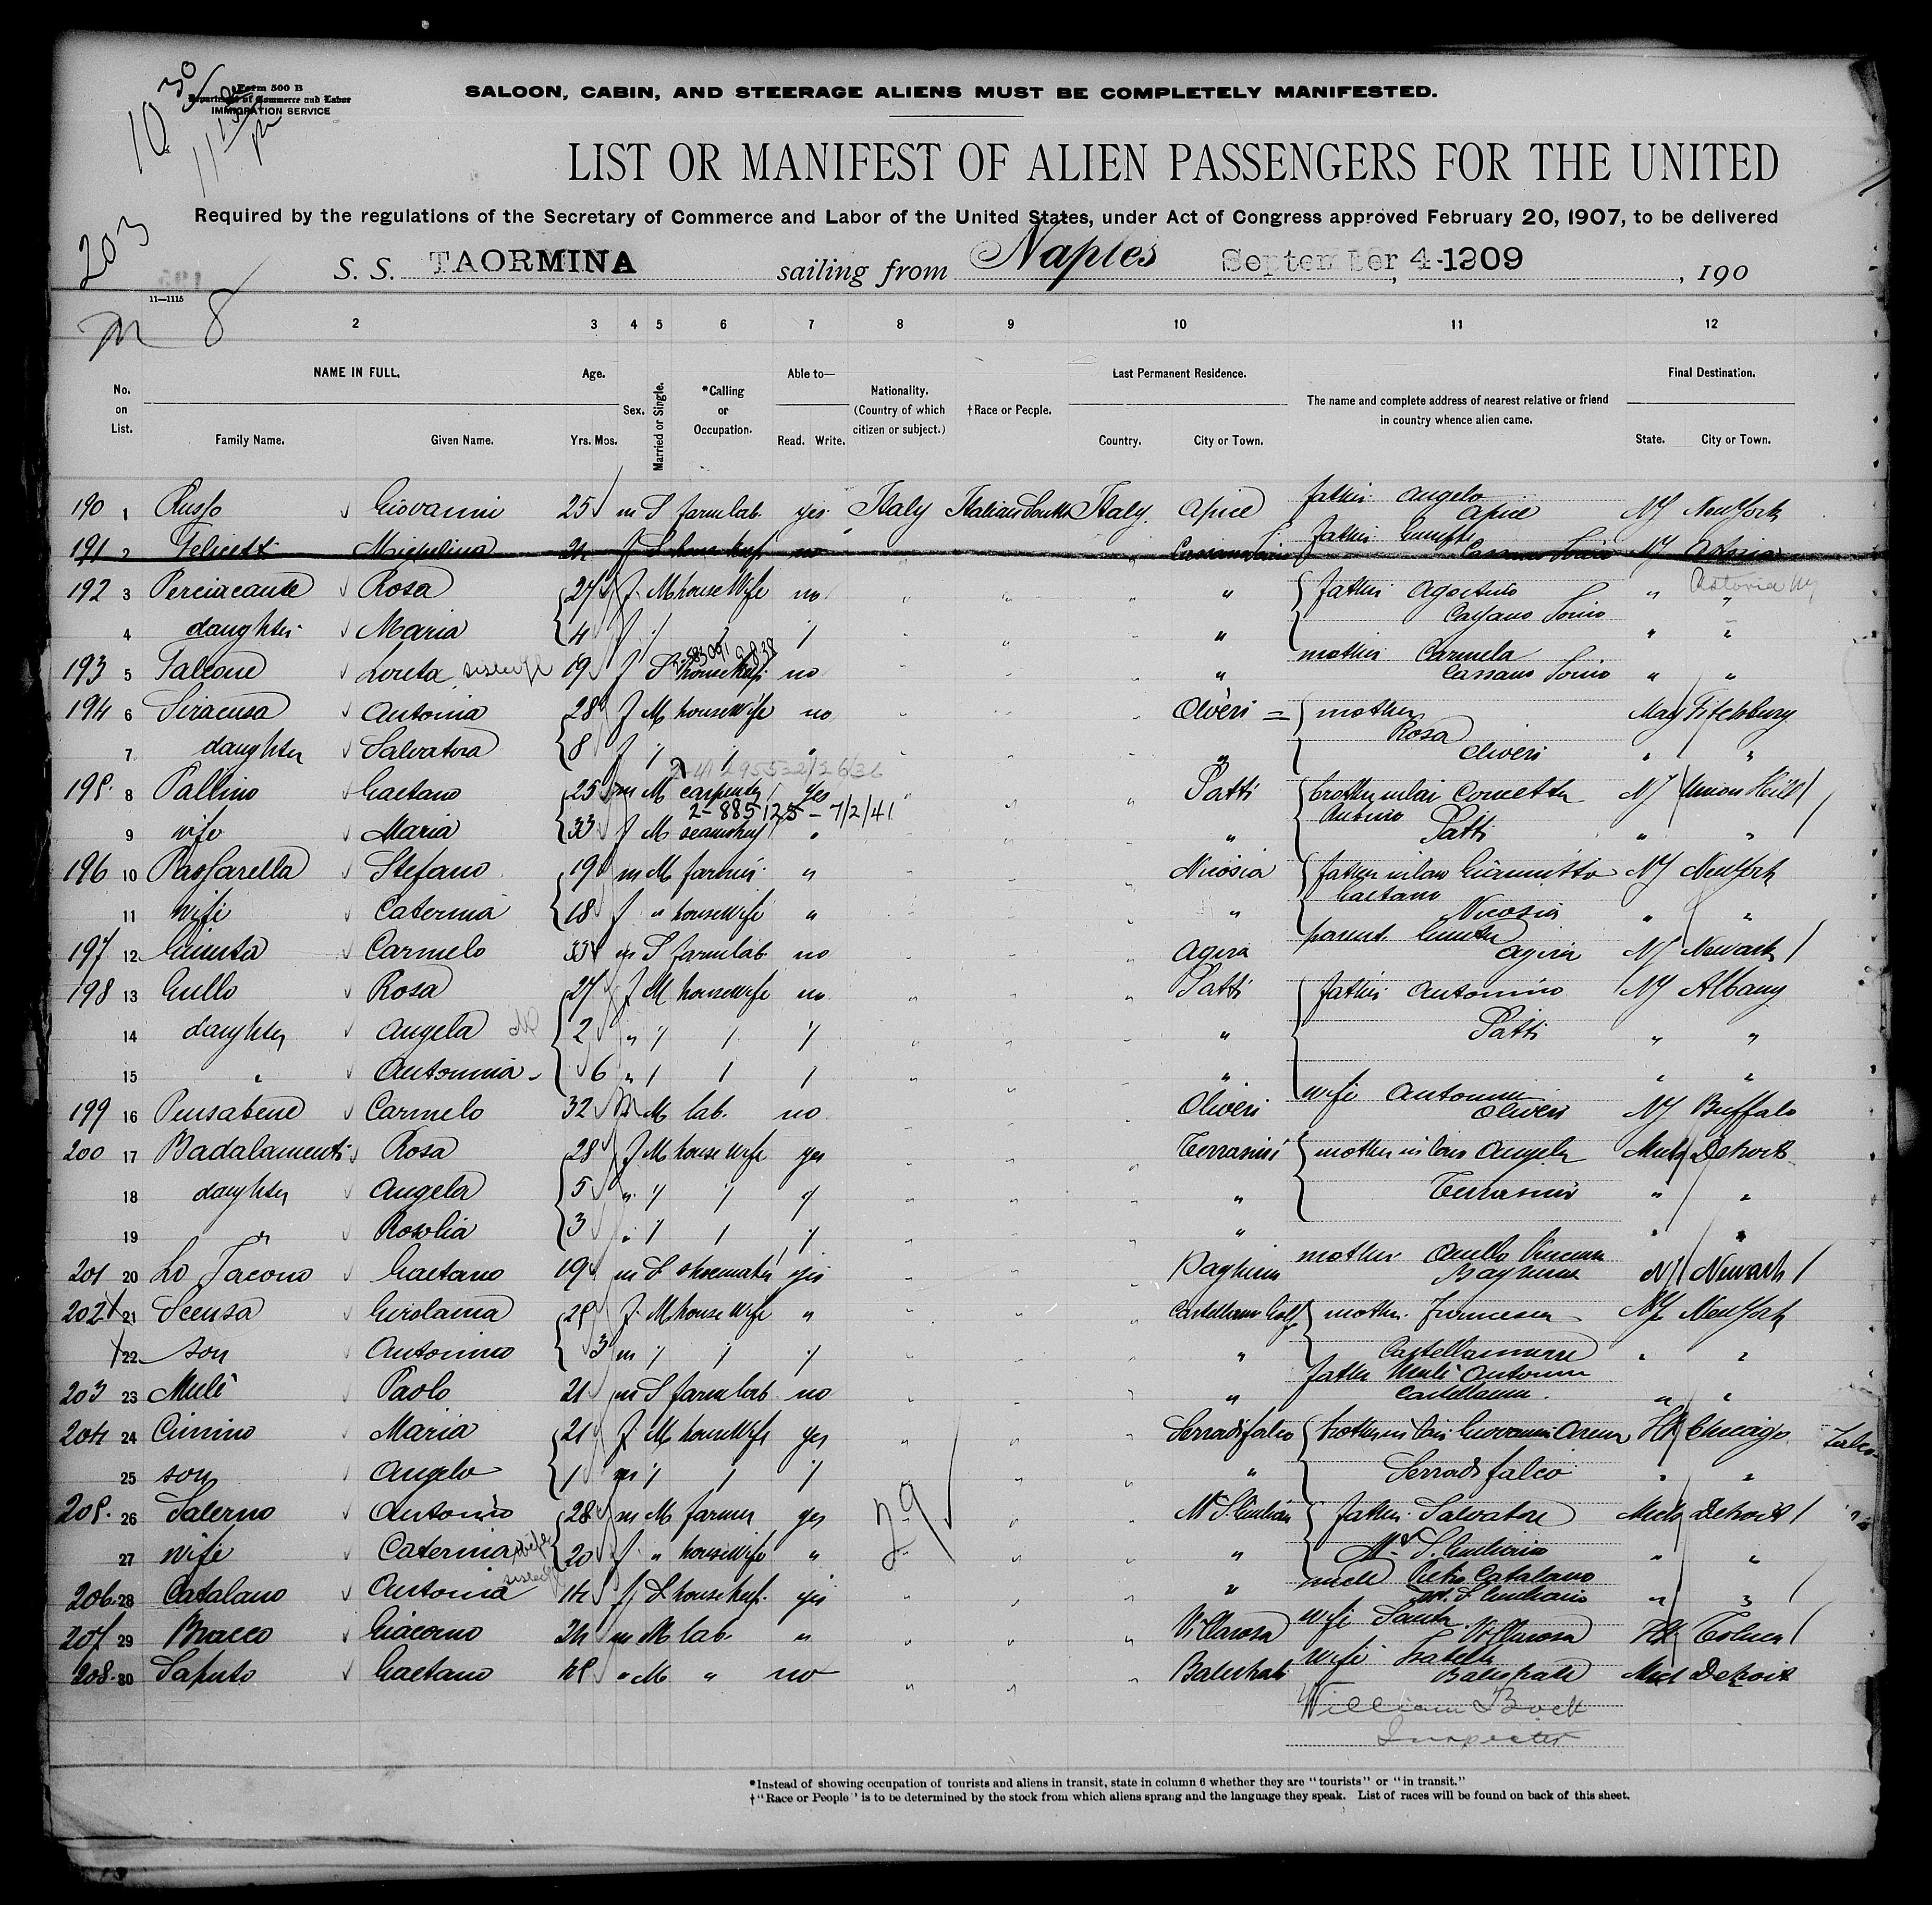 Form 500 B
Department of Commerce and Labor
IMMIGRATION SERVICE
10 30
11 150
pm
203
SALOON, CABIN, AND STEERAGE ALIENS MUST BE COMPLETELY MANIFESTED.
LIST OR MANIFEST OF ALIEN PASSENGERS FOR THE UNITED
Required by the regulations of the Secretary of Commerce and Labor of the United States, under Act of Congress approved February 20, 1907, to be delivered
S. S. TAORMINA sailing from Naples September 4-1909, 190
11—1115
m 8
2 3 4 5 6 7 8 9 10 11 12
No. on List. NAME IN FULL. Age. Sex. Married or Single. *Calling or Occupation. Able to— Nationality. (Country of which citizen or subject.) †Race or People. Last Permanent Residence. The name and complete address of nearest relative or friend in country whence alien came. Final Destination.
Family Name. Given Name. Yrs. Mos. Read. Write. Country. City or Town. State. City or Town.
190 1 Russo Giovanni 25 m S farm lab. yes Italy Italian South Italy Apice father Angelo Apice NY New York
191 2 Felicetti Michelina 24 f S no father NY Astoria
192 3 Perciacante Rosa 27 f M house wife no " father Agostino Cassano Ionio " " Astoria NY
4 daughter Maria 4 f / / " " "
2-583091 9.8.38
193 5 Falcone Loreta 19 f S no " mother Carmela Cassano Ionio " "
194 6 Siracusa Antonia 28 f M housewife no Oliveri = mother Rosa Oliveri Mas Fitchburg
7 daughter Salvatora 8 f / / " " " "
195 8 Pallino Gaetano 25 m M carpenter yes Patti brother in law Cometta Antonio Patti NJ Union Hill
2-885125 - 7/2/41
9 wife Maria 33 f M " " " "
196 10 Passarella Stefano 19 m M farmer " Nicosia father in law Gaetano Nicosia NY New York
11 wife Caterina 18 f " housewife " " " "
197 12 Giunta Carmelo 33 m S farm lab. no Agira parent Giunta Agira NJ Newark
198 13 Gullo Rosa 27 f M housewife no Patti father Antonino Patti NY Albany
14 daughter Angela 2 " / / / " " "
15 " Antonina 6 " / / / " " "
199 16 Pensabene Carmelo 32 m M lab. no Oliveri wife Antonina Oliveri NY Buffalo
200 17 Badalamenti Rosa 28 f M house wife yes Terrasini mother in law Angela Terrasini Mich Detroit
18 daughter Angela 5 " / / / " " "
19 " Rosolia 3 " / / / " " "
201 20 Lo Iacono Gaetano 19 m S shoemaker yes Bagheria mother Aiello Vincenza Bagheria NJ Newark
202 21 Scensa Girolama 25 f M house wife " Castellam Golf mother Francesca Castellammare NY New York
22 son Antonino 3 m / / / " " "
203 23 Mulè Paolo 21 m S farm lab no " father Mulè Antonino Castellam. " "
204 24 Cimino Maria 21 f M housewife yes Serradifalco brother in law Giovanni Arena Serradifalco Ill Chicago
25 son Angelo 1 m / / / " " "
29
205 26 Salerno Antonio 28 m M farmer yes Mte S. Giulian father Salvatore Mte S. Giuliano Mich Detroit
27 wife Caterina wife 20 f " housewife " " " "
206 28 Catalano Antonia 14 f S house keep. yes " uncle Pietro Catalano " "
207 29 Bracco Giacomo 24 m M lab. " Villarosa wife Santa Villarosa Ill
208 30 Saputo Gaetano 45 " M " no Balestrate wife Isabella Balestrate Mich Detroit
William Bock
Inspector
*Instead of showing occupation of tourists and aliens in transit, state in column 6 whether they are "tourists" or "in transit."
†"Race or People" is to be determined by the stock from which aliens sprang and the language they speak. List of races will be found on back of this sheet.